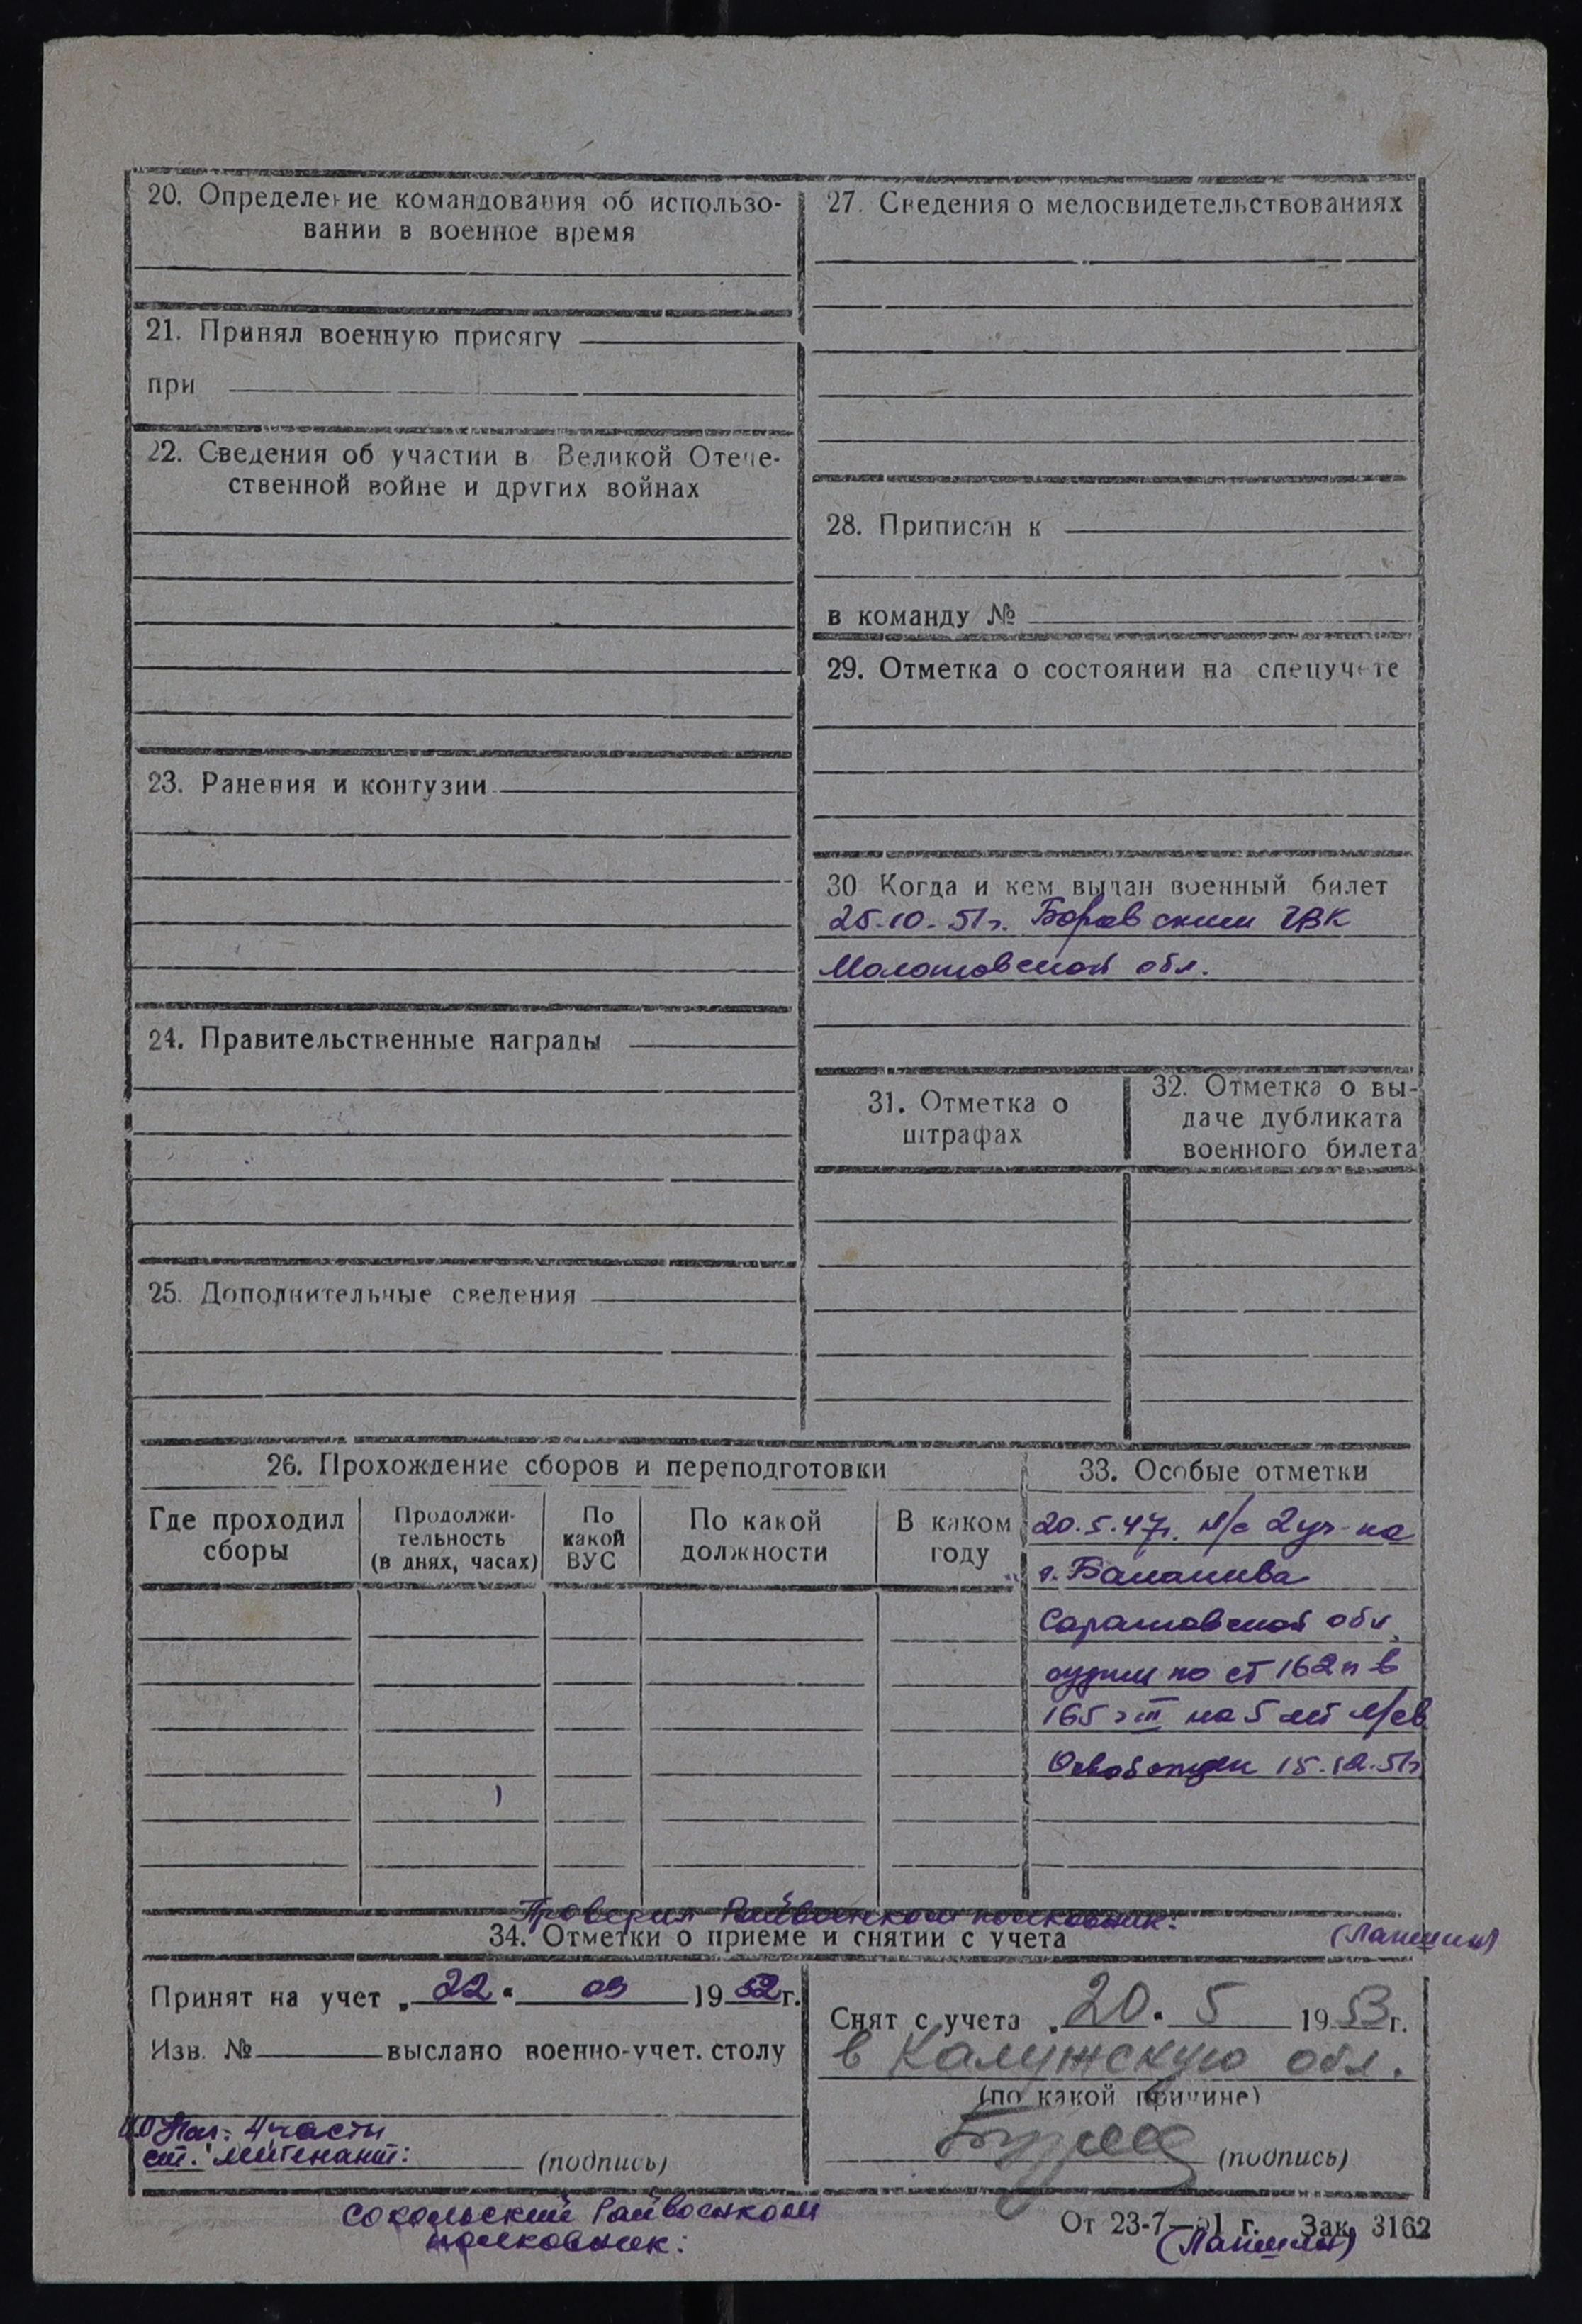 20. Определение командования об использо-
вании в военное время
21. Принял военную присягу
при
22. Сведения об участии в Великой Отече-
ственной войне и других войнах
23. Ранения и контузии
24. Правительственные награды
25. Дополнительные сведения
27. Сведения о медосвидетельствованиях
28. Приписан к
в команду №
29. Отметка о состоянии на спецучете
30 Когда и кем выдан военный билет
25.10.51г. Боровским ГВК
Молотовской обл.
31. Отметка о
штрафах
32. Отметка о вы-
даче дубликата
военного билета
26. Прохождение сборов и переподготовки
Где проходил
сборы
Продолжи-
тельность
(в днях, часах)
По
какой
ВУС
По какой
должности
В каком
году
33. Особые отметки
20.5.47г. н/с 2 уч-ка
г.
Саратовской обл.
судим по ст 162 п в
165 ч III на 5 лет
Освобожден 15.12.51г
Проверил Райвоенком полковник: (Лапшин)
34. Отметки о приеме и снятии с учета
Принят на учет „22“ 09 1952г.
Изв. № выслано военно-учет. столу
ИО Нач. 4 части
ст. лейтенант: (подпись)
Снят с учета „20“ 5 1953г.
в Калужскую обл.
(по какой причине)
(подпись)
Сокольский Райвоенком
полковник: (Лапшин)
От 23-7—51 г. Зак. 3162